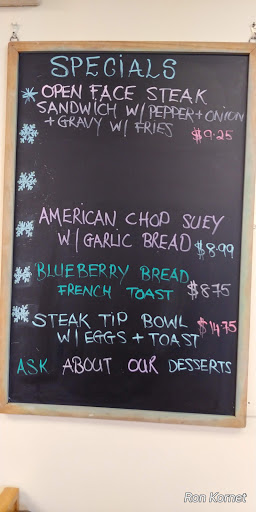 SPECIALS
OPEN FACE STEAK
SANDWICH W/ PEPPER + ONION
+ GRAVY W/ FRIES $9.25
AMERICAN CHOP SUEY
W/ GARLIC BREAD $8.99
BLUEBERRY BREAD
FRENCH TOAST $8.75
STEAK TIP BOWL $14.75
W/ EGGS + TOAST
ASK ABOUT OUR DESSERTS
Ron Kornet